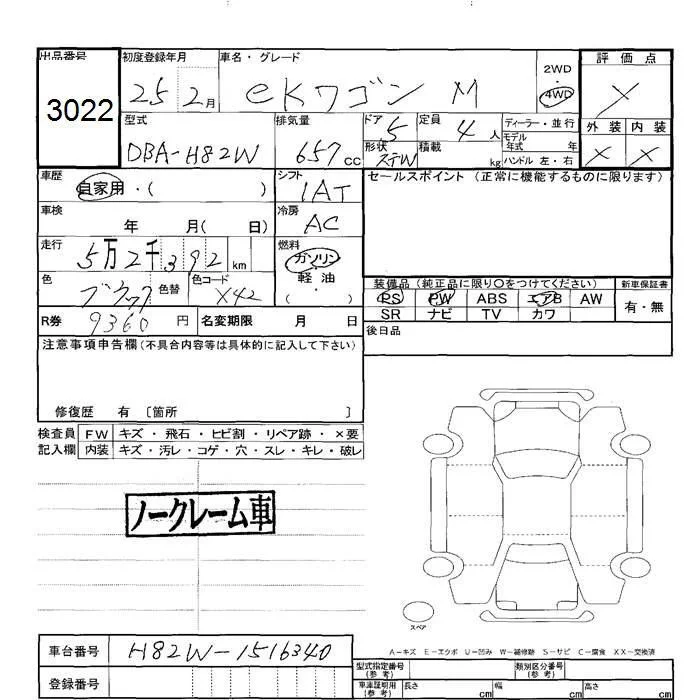 出品番号 初度登録年月 車名・グレード 2WD 評価点
3022 25 2月 eKワゴン M 4WD
型式 排気量 ドア 定員 ディーラー・並行 外装 内装
5 4人 モデル年式 年
DBA-H82W 657cc 形状 STW 積載 kg ハンドル 左・右 × ×
車歴 自家用・( ) シフト IAT セールスポイント (正常に機能するものに限ります)
車検 年 月( 日) 冷房 AC
走行 5万2千392km 燃料 ガソリン
軽油
・( )
色 色替 色コード X42 装備品(純正品に限り○をつけてください) 新車保証書
PS PW ABS エアB AW 有・無
R券 9360円 名変期限 月 日 SR ナビ TV カワ
注意事項申告欄(不具合内容等は具体的に記入して下さい) 後日品
修復歴 有 〔箇所 〕
検査員 FW キズ・飛石・ヒビ割・リペア跡・×要
記入欄 内装 キズ・汚レ・コゲ・穴・スレ・キレ・破レ
ノークレーム車
スペア
A−キズ E−エクボ U−凹み W−補修跡 S−サビ C−腐食 XX−交換済
車台番号 H82W-1516340 型式指定番号(参考) 類別区分番号(参考)
登録番号 車庫証明用(参考) 長さ cm 幅 cm 高さ cm